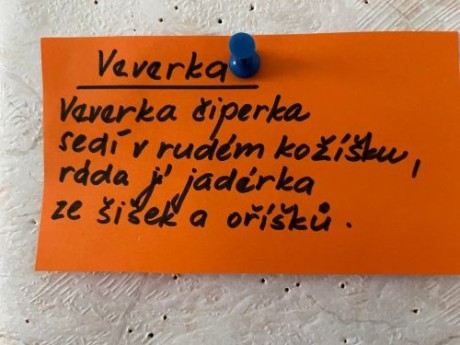 Veverka
Veverka čiperka
sedí v rudém kožíšku,
ráda jí jadérka
ze šišek a oříšků.